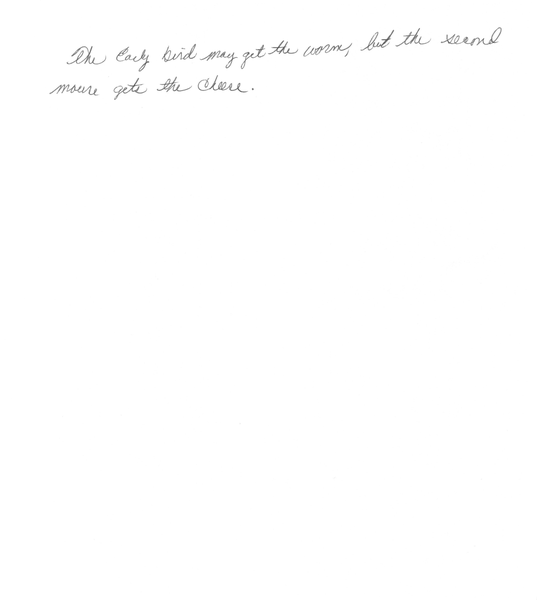 The Early bird may get the worm, but the second
mouse gets the Cheese.